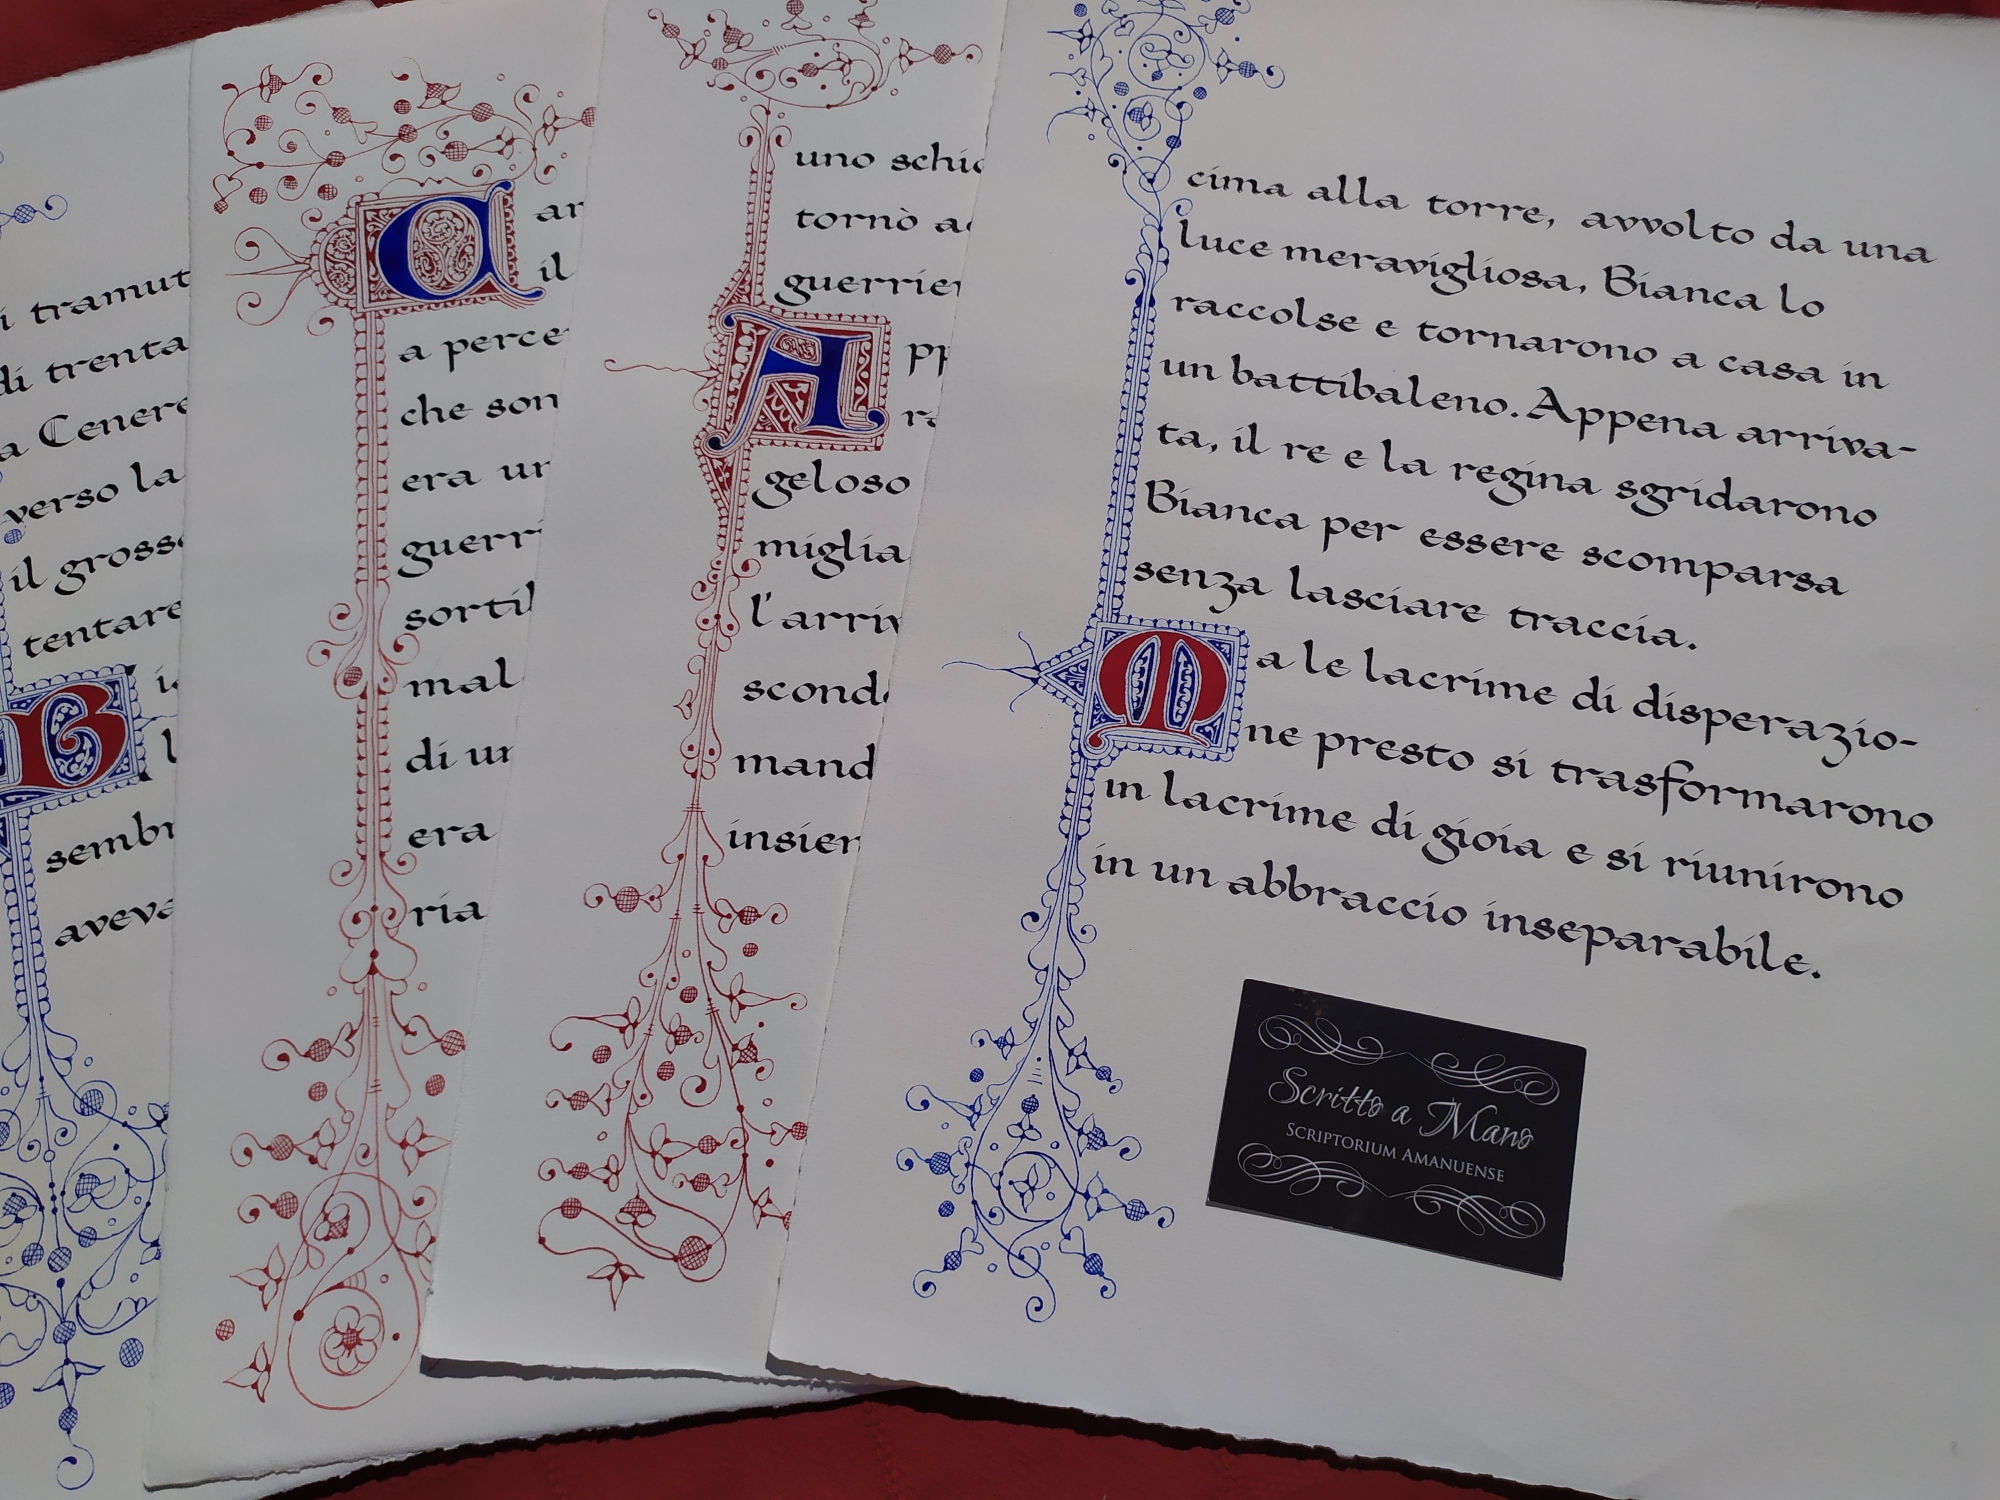 tramut
di trenta
a Cenere
verso la
il grosso
tentare
B
sembr
aveva
C ar
il
a perce
che son
era un
guerri
sortil
mal
di un
era
ria
uno schi
tornò a
guerrier
A pp
ra
geloso
miglia
l'arriv
scond
mand
insiem
cima alla torre, avvolto da una
luce meravigliosa, Bianca lo
raccolse e tornarono a casa in
un battibaleno. Appena arriva-
ta, il re e la regina sgridarono
Bianca per essere scomparsa
senza lasciare traccia.
Ma le lacrime di disperazio-
ne presto si trasformarono
in lacrime di gioia e si riunirono
in un abbraccio inseparabile.
Scritto a Mano
SCRIPTORIUM AMANUENSE